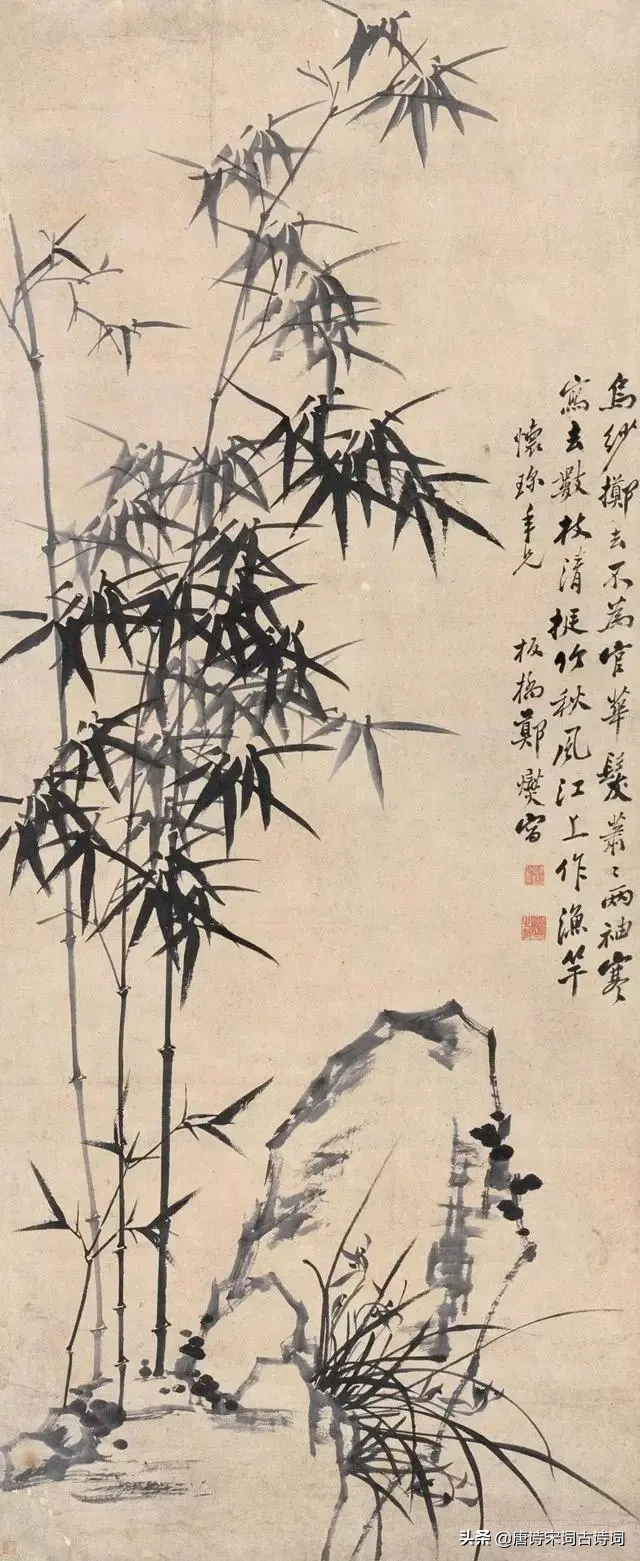 烏紗擲去不為官華髮蕭〻兩袖寒
寫去數枝清挺竹秋風江上作漁竿
懷珎年兄 板橋鄭燮寫
头条 @唐诗宋词古诗词